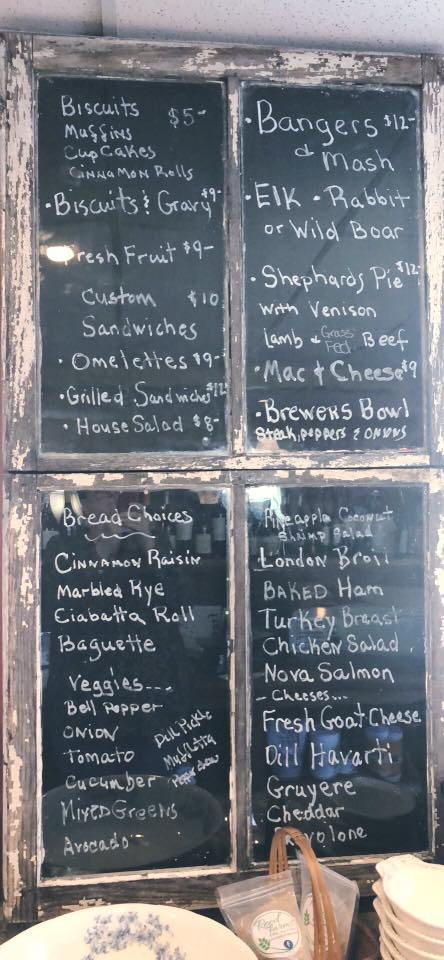 Biscuits $5-
Muffins
CupCakes
Cinnamon Rolls
• Biscuits & Gravy $9-
resh Fruit $9-
Custom $10
Sandwiches
• Omelettes $9-
• Grilled Sandwiches $12
• House Salad $8-
• Bangers $12-
& Mash
• Elk • Rabbit
or Wild Boar
• Shephards Pie $12-
with Venison
lamb & Grass Fed Beef
• Mac & Cheese $9
• Brewers Bowl
Steak, peppers & onions
Bread Choices
Cinnamon Raisin
Marbled Rye
Ciabatta Roll
Baguette
Veggies...
Bell Pepper
Onion
Tomato
Cucumber
Mixed Greens
Avocado
Dill Pickle
Pineapple Coconut
Shrimp Salad
London Broil
Baked Ham
Turkey Breast
Chicken Salad
Nova Salmon
- Cheeses...
Fresh Goat Cheese
Dill Havarti
Gruyere
Cheddar
ovolone